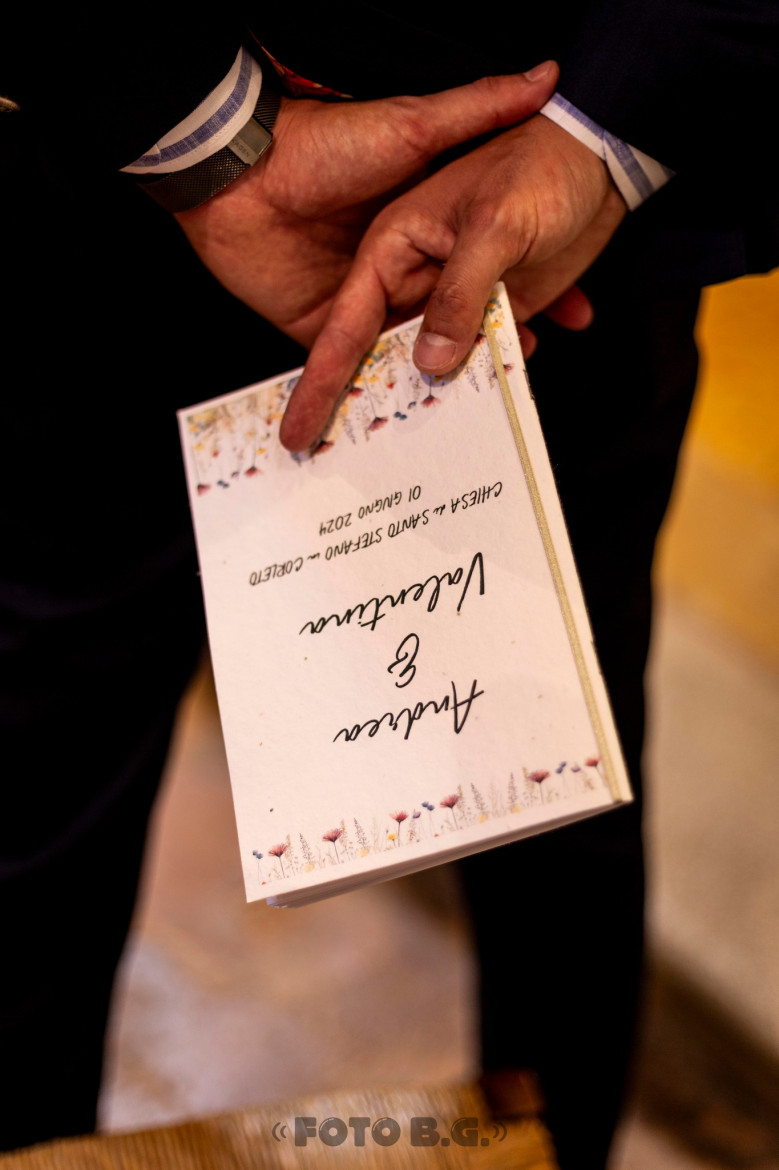 Andrea
&
Valentina
CHIESA di SANTO STEFANO in CORLETO
01 GIUGNO 2024
FOTO B.G.